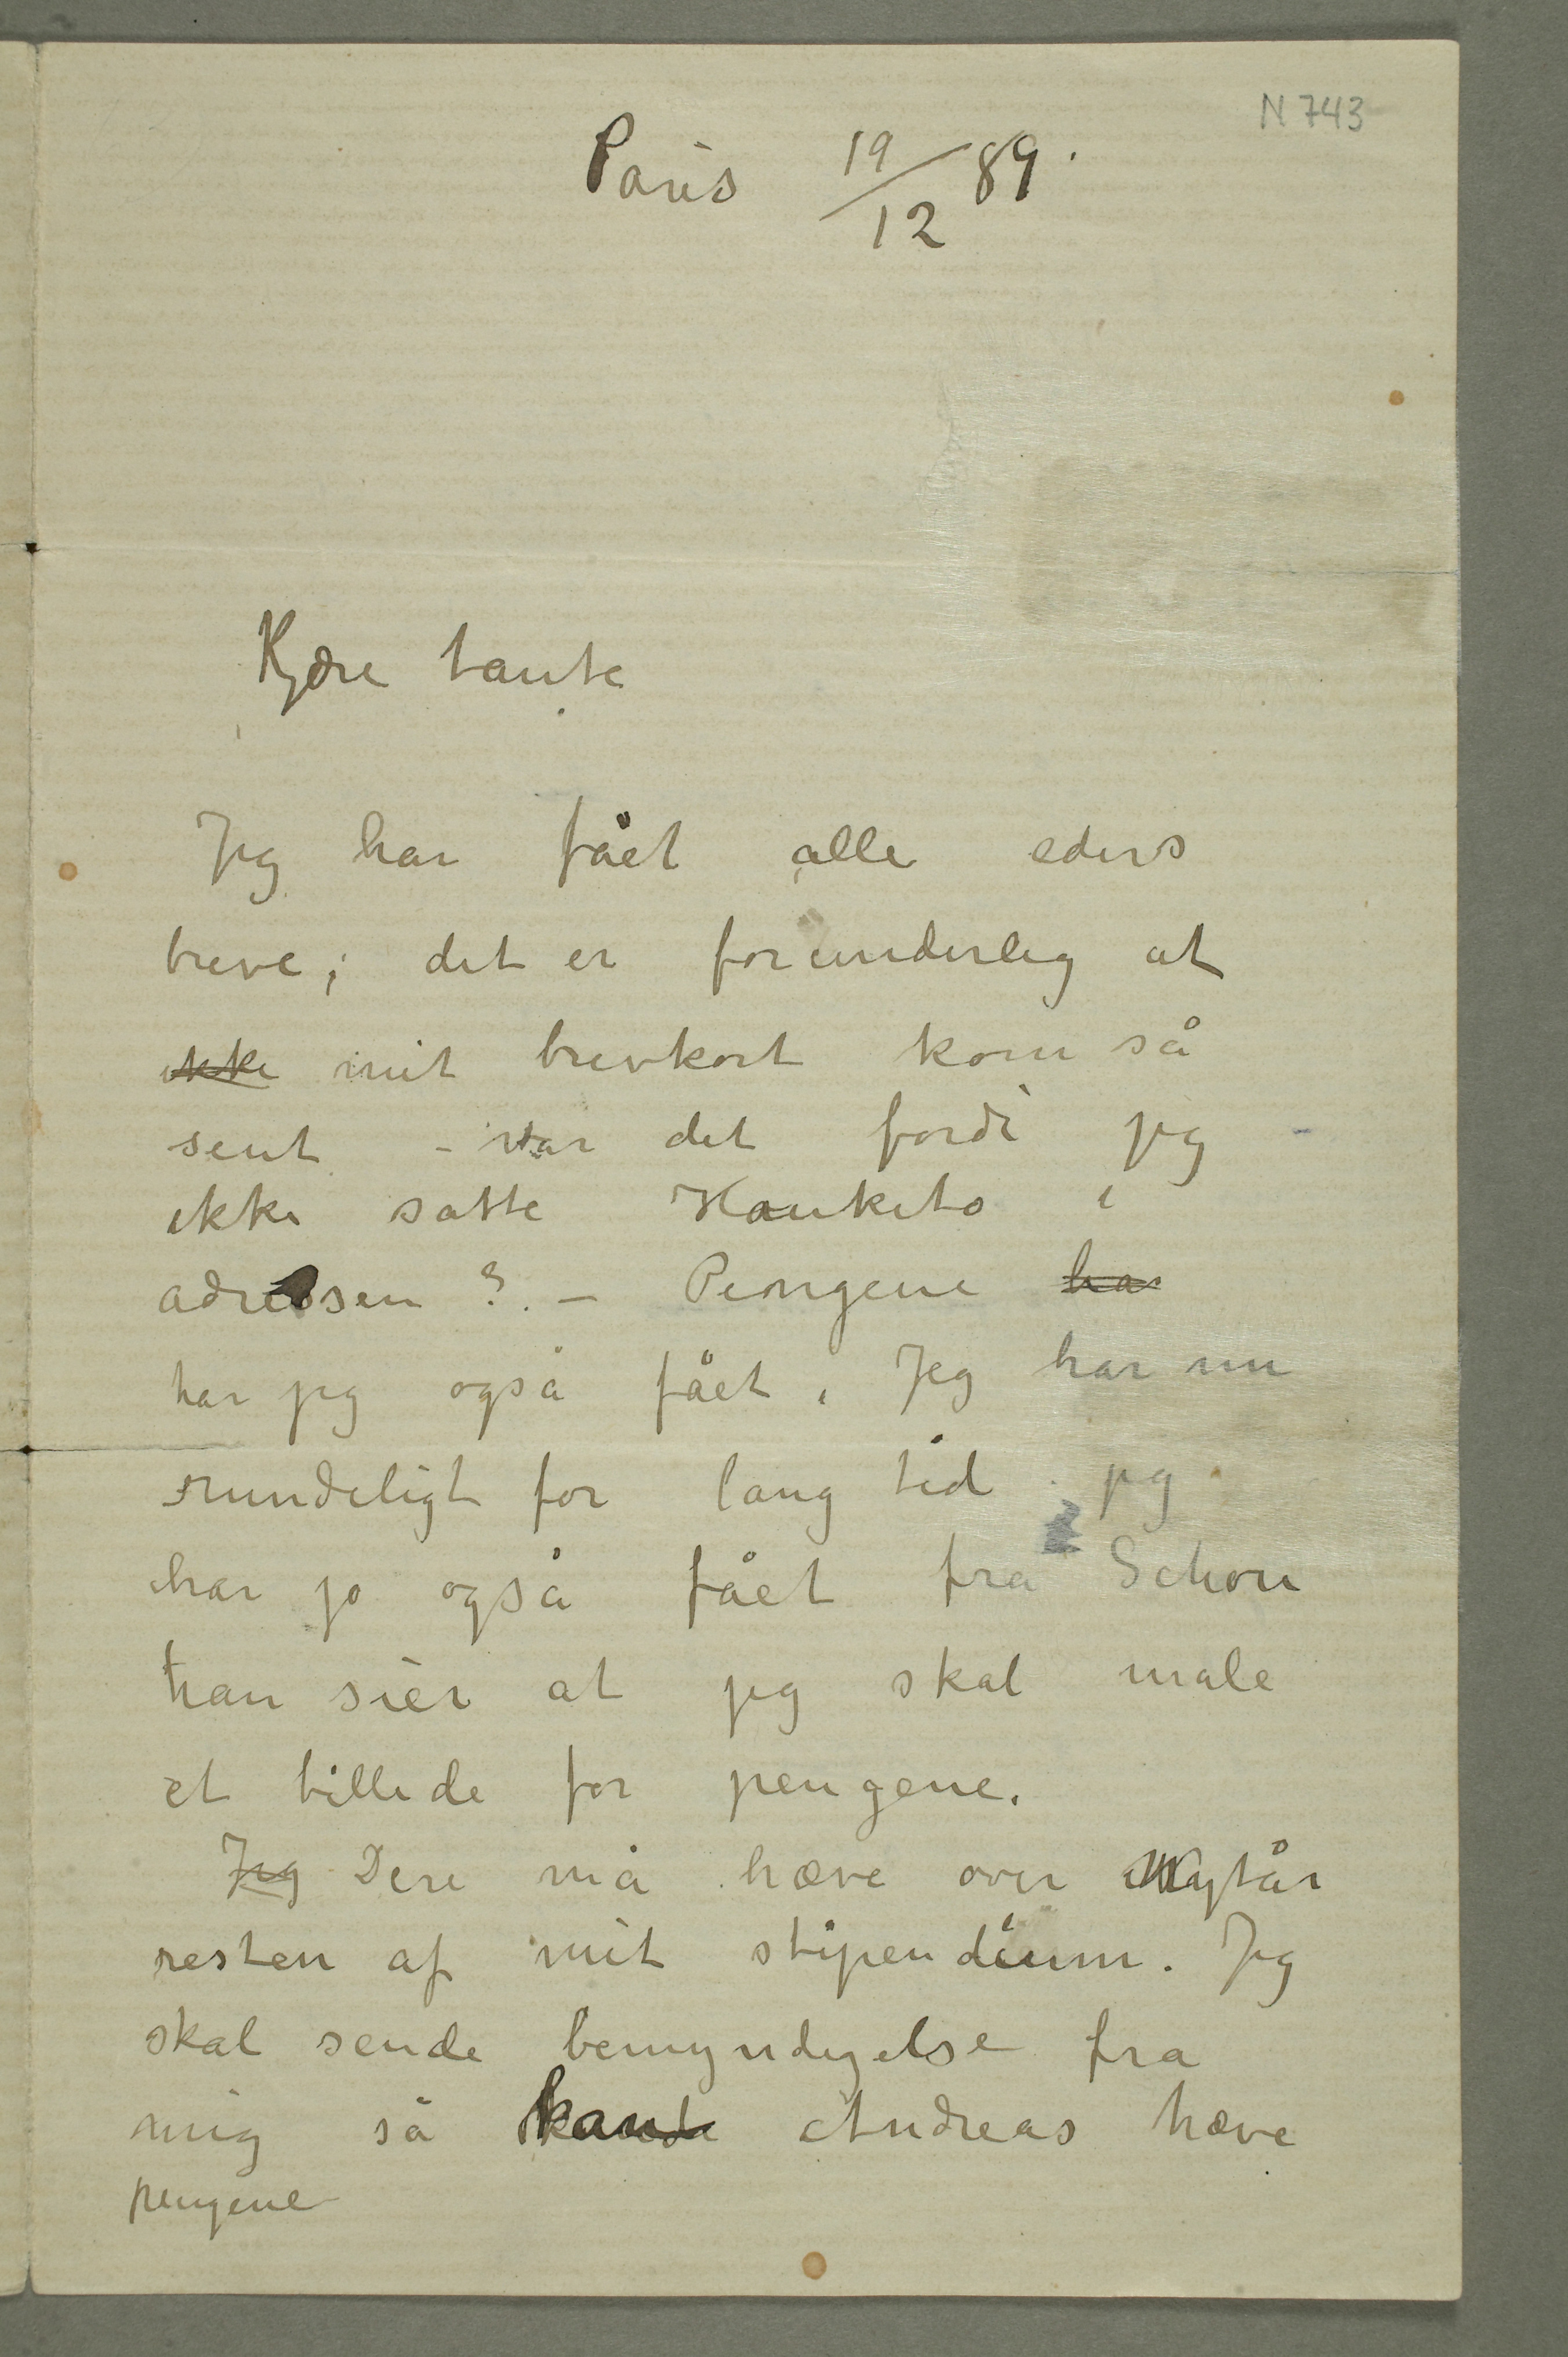 N 743
Paris 19/12 89.
Kjære tante
Jeg har fået alle eders
breve; det er forunderlig at
ikke mit brevkort kom så
sent – var det fordi jeg
ikke satte Haukets i
adressen ?. – Pengene har
har jeg også fået. Jeg har nu
rundeligt for lang tid jeg
har jo også fået fra Schou
han sier at jeg skal male
et billede for pengene.
Jeg Dere må hæve over Nytår
resten af mit stipendium. Jeg
skal sende bemyndigelse fra
mig så kan Andreas hæve
pengene